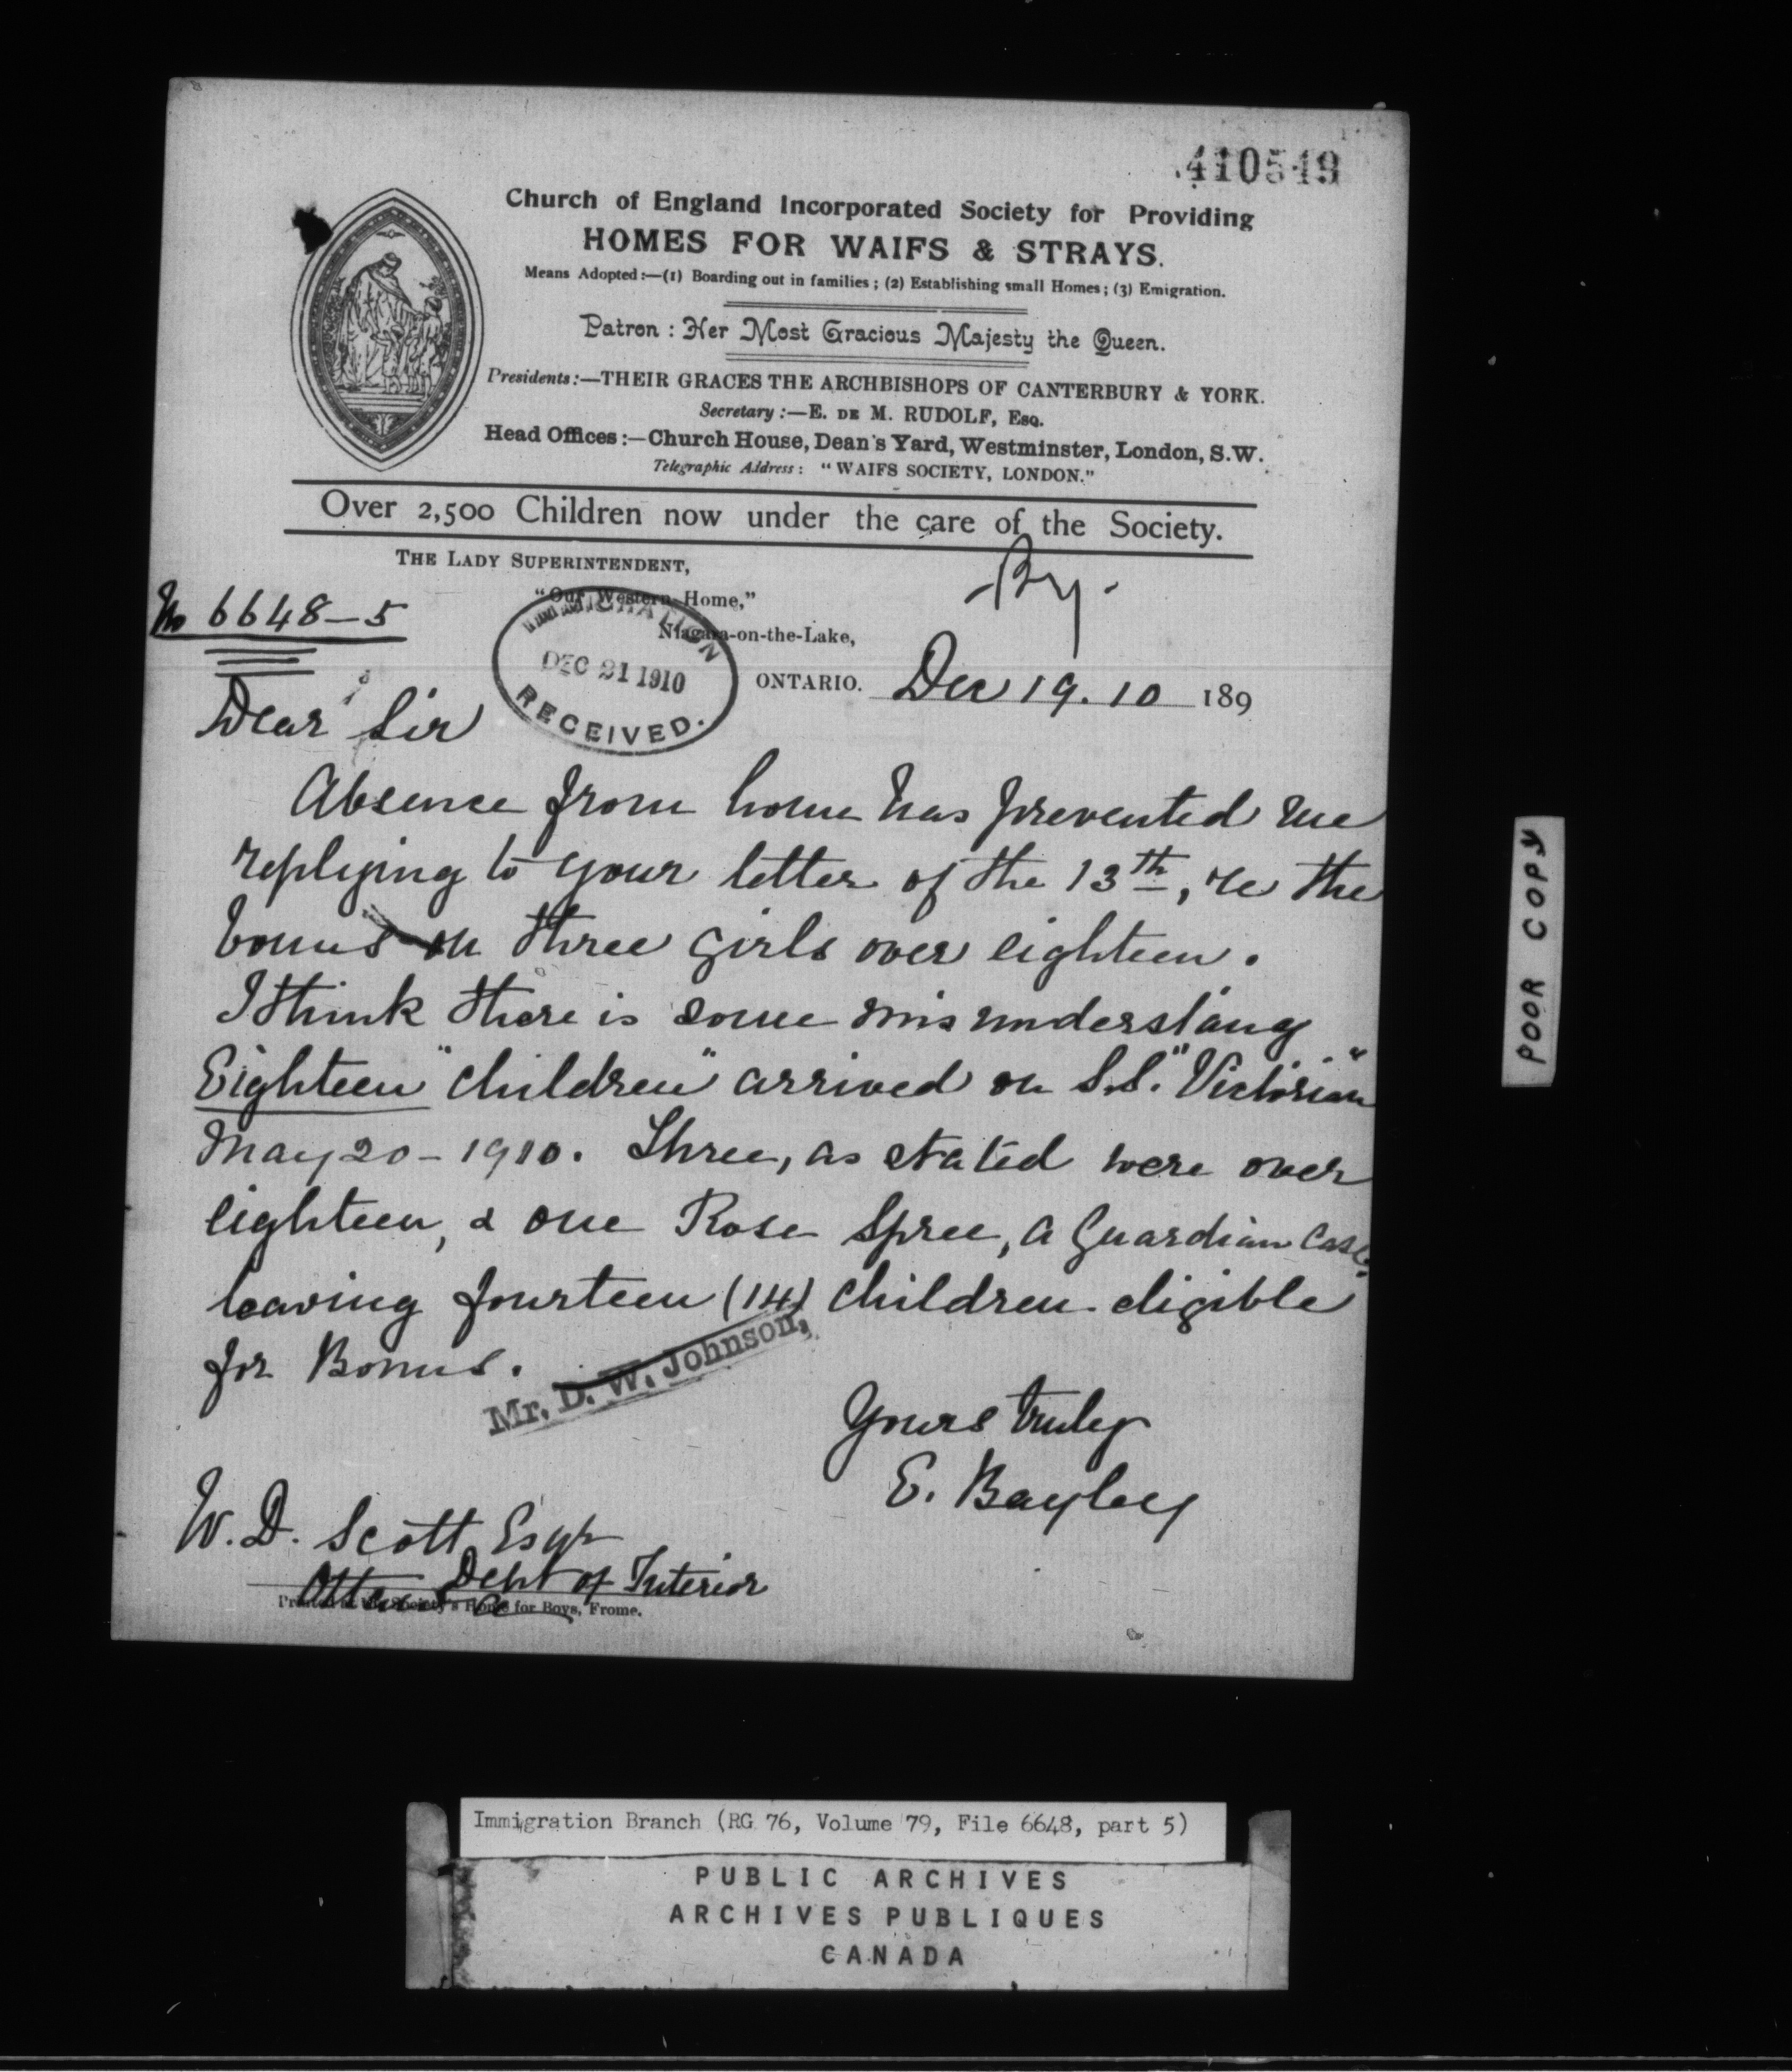 410549
Church of England Incorporated Society for Providing
HOMES FOR WAIFS & STRAYS.
Means Adopted:—(1) Boarding out in families; (2) Establishing small Homes; (3) Emigration.
Patron: Her Most Gracious Majesty the Queen.
Presidents:—THEIR GRACES THE ARCHBISHOPS OF CANTERBURY & YORK.
Secretary:—E. DE M. RUDOLF, ESQ.
Head Offices:—Church House, Dean's Yard, Westminster, London, S.W.
Telegraphic Address: "WAIFS SOCIETY, LONDON."
Over 2,500 Children now under the care of the Society.
THE LADY SUPERINTENDENT,
"Our Western Home,"
Niagara-on-the-Lake,
ONTARIO. Dec 19. 10 189
No 6648-5
IMMIGRATION
DEC 21 1910
RECEIVED.
Dear Sir
Absence from home has prevented me
replying to your letter of the 13th, re the
bonus on three girls over eighteen.
I think there is some misunderstang
Eighteen "children" arrived on S.S. "Victorian"
May 20-1910. Three, as stated were over
eighteen, & one Rose Spree, a Guardian case,
leaving fourteen (14) children eligible
for Bonus.
Mr. D. W. Johnson,
Yours truly
E. Bayley
W. D. Scott Esqr
Dept of Interior
Ottawa
Printed at the Society's Home for Boys, Frome.
POOR COPY
Immigration Branch (RG 76, Volume 79, File 6648, part 5)
PUBLIC ARCHIVES
ARCHIVES PUBLIQUES
CANADA